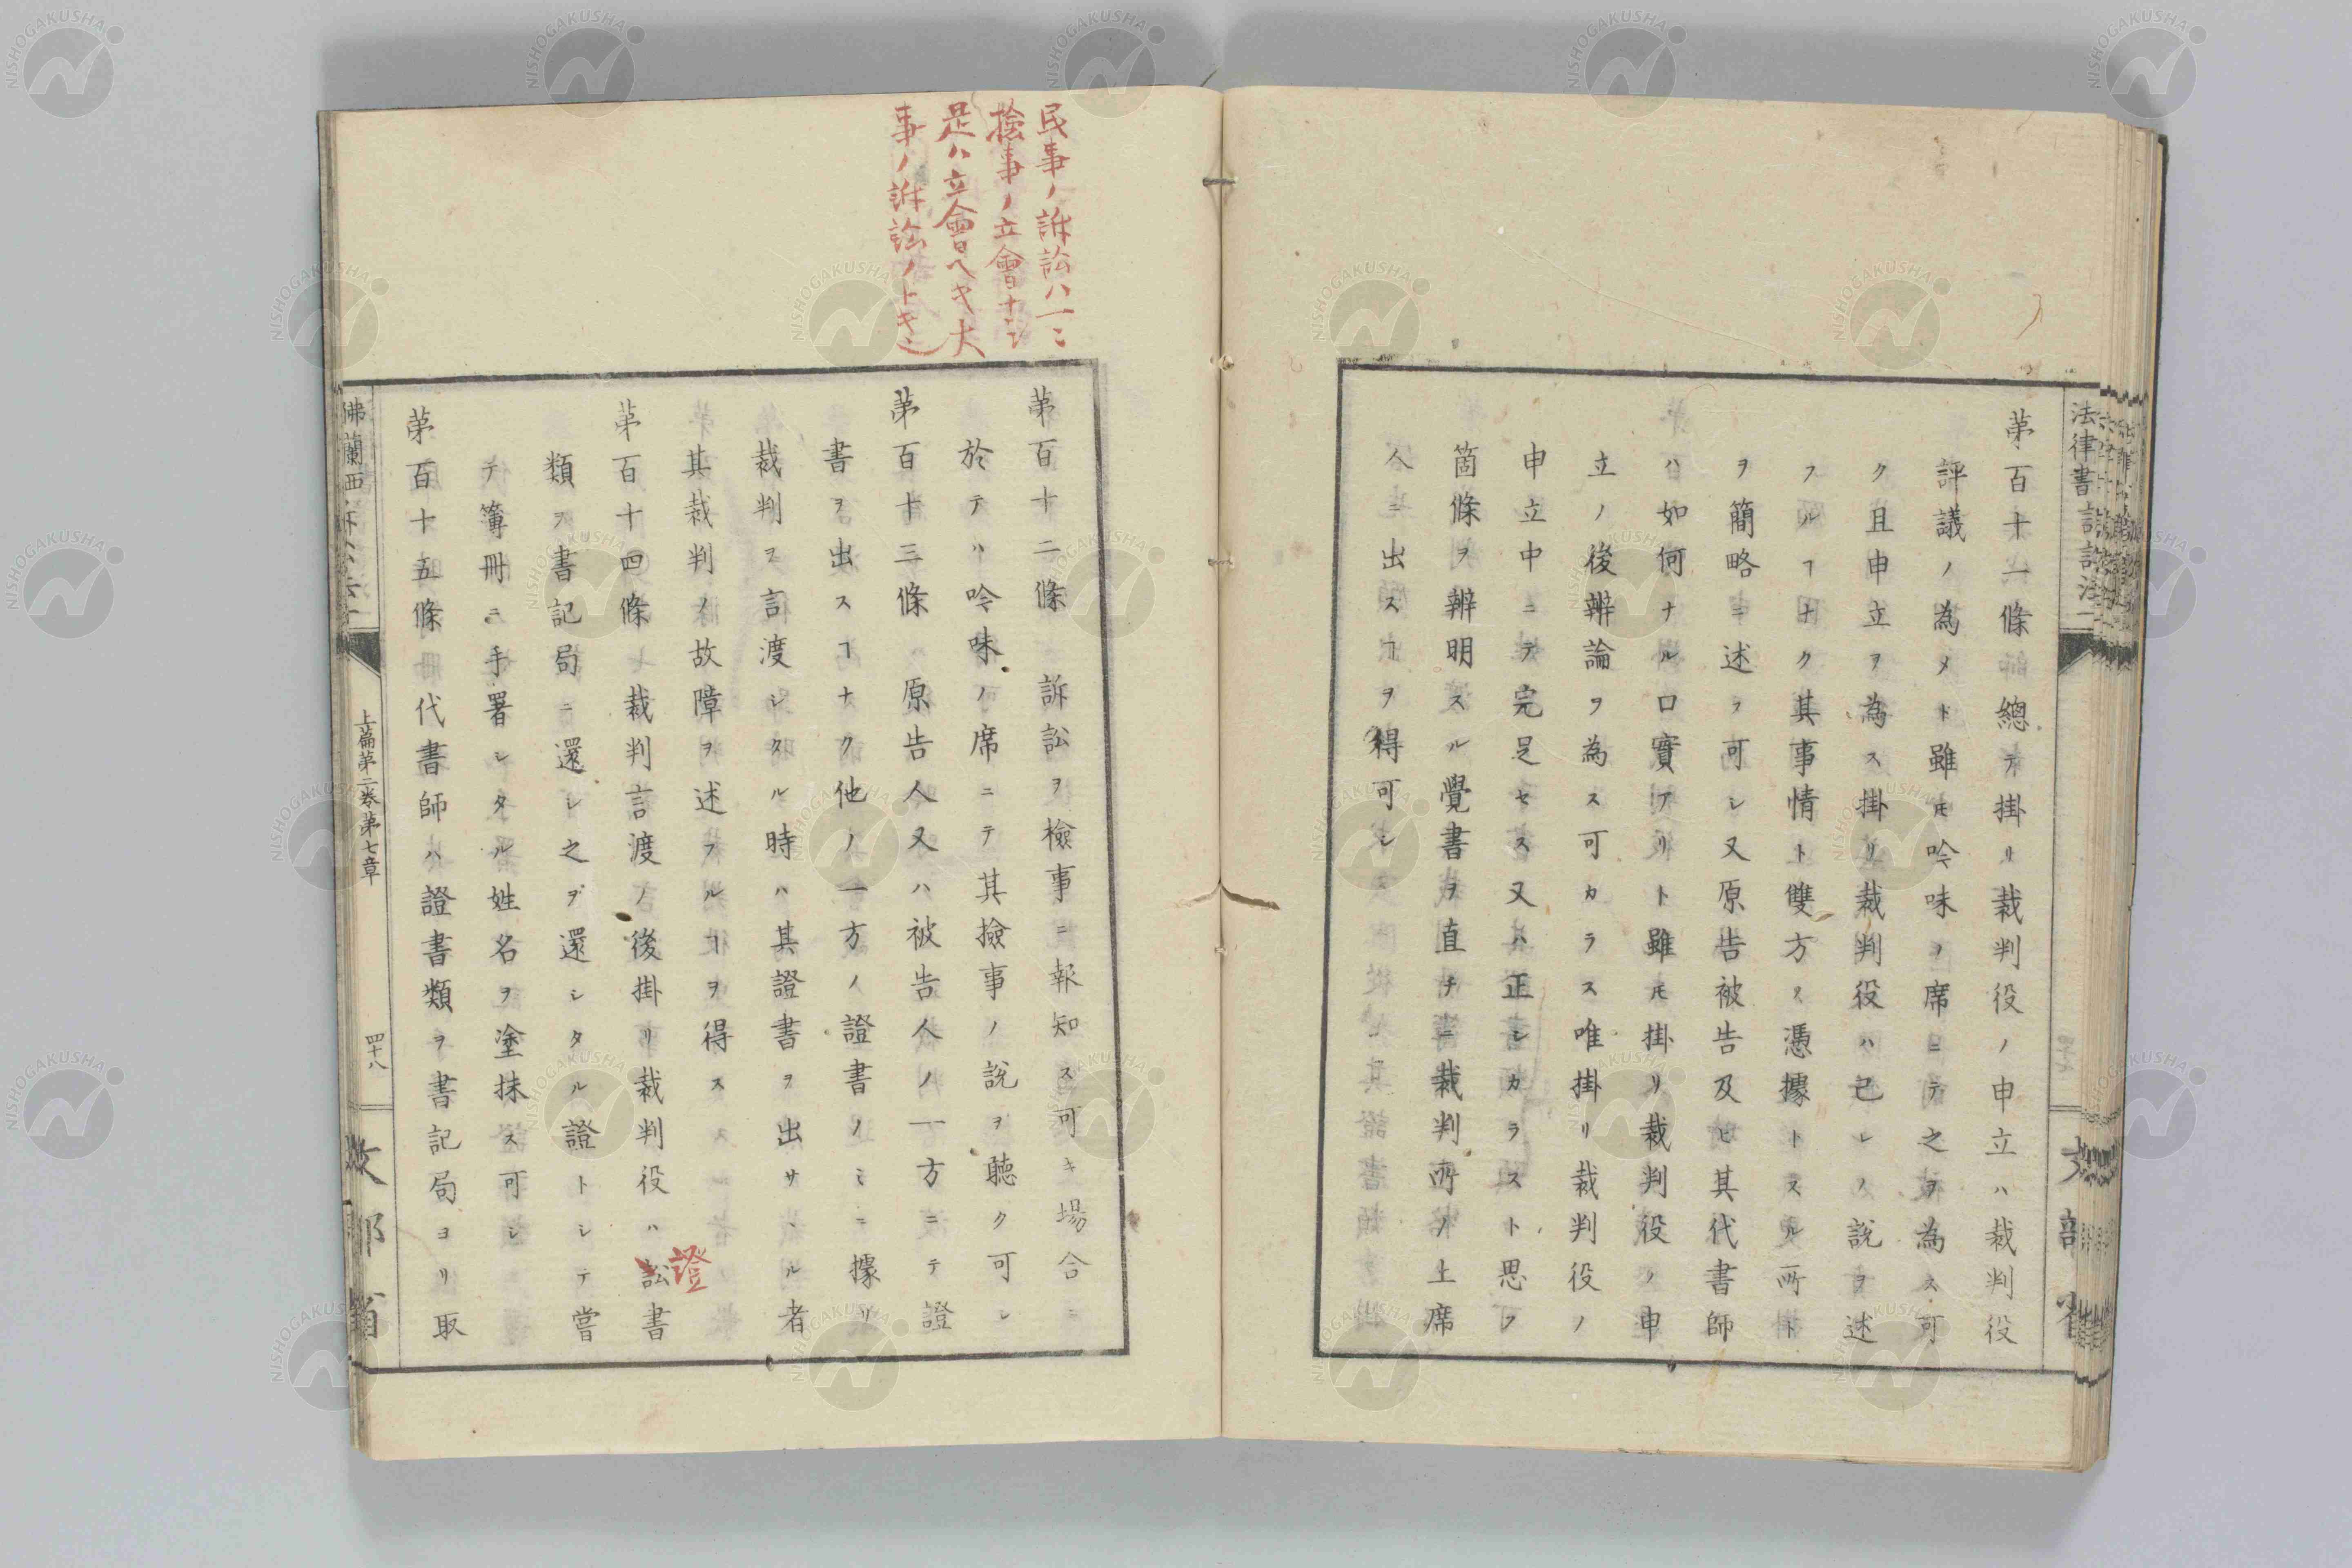 第百十一條 總テ掛リ裁判役ノ申立ハ裁判役
評議ノ為メト雖モ吟味ノ席ニテ之ヲ為ス可
ク且申立ヲ為ス掛リ裁判役ハ己レノ說ヲ述
フルヿナク其事情ト雙方ノ憑據トスル所ト
ヲ簡略ニ述フ可シ又原告被告及ヒ其代書師
ハ如何ナル口實アリト雖モ掛リ裁判役ノ申
立ノ後辨論ヲ為ス可カラス唯掛リ裁判役ノ
申立中ニテ完足セス又ハ正シカラスト思フ
箇條ヲ辨明スル覺書ヲ直チニ裁判所ノ上席
人ニ出スヿヲ得可シ
民事ノ訴訟ハ一ニ
撿事ノ立會ナシ
是ハ立會ヘキ大
事ノ訴訟ノトキ
第百十二條 訴訟ヲ檢事ニ報知ス可キ場合ニ
於テハ吟味ノ席ニテ其撿事ノ說ヲ聽ク可シ
第百十三條 原告人又ハ被告人ノ一方ニテ證
書ヲ出スヿナク他ノ一方ノ證書ノミニ據リ
裁判ヲ言渡シタル時ハ其證書ヲ出サヽル者
其裁判ノ故障ヲ述フルヿヲ得ス
第百十四條 裁判言渡ノ後掛リ裁判役ハ訟書
證
類ヲ書記局ニ還シ之ヲ還シタル證トシテ嘗
テ簿冊ニ手署シタル姓名ヲ塗抹ス可シ
第百十五條 代書師ハ證書類ヲ書記局ヨリ取
佛蘭西
上篇第二卷第七章
四十八
文部省
法律書 訴訟法
NISHOGAKUSHA